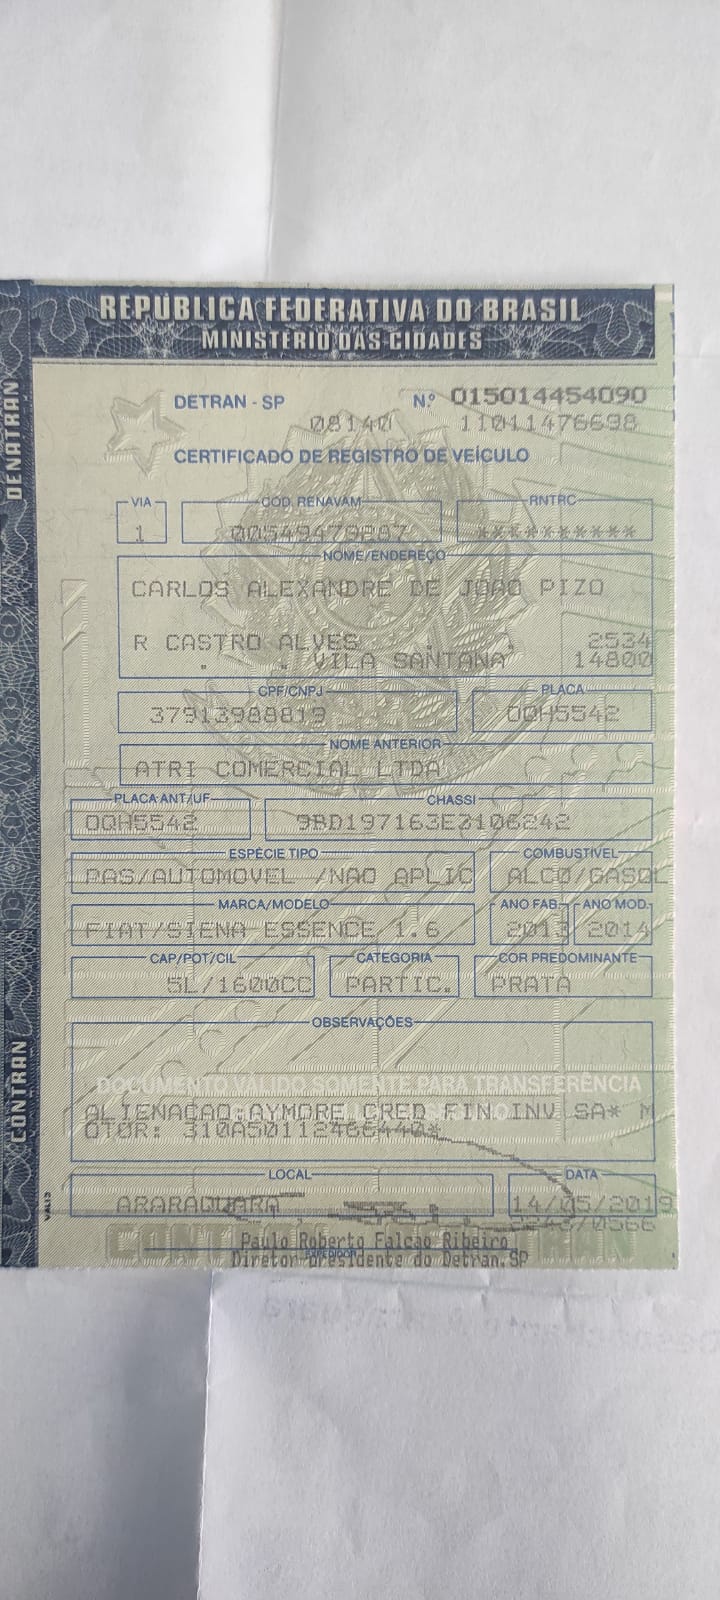 REPÚBLICA FEDERATIVA DO BRASIL
MINISTÉRIO DAS CIDADES
DENATRAN
CONTRAN
DETRAN - SP Nº 015014454090
08140 11011476698
CERTIFICADO DE REGISTRO DE VEÍCULO
VIA CÓD. RENAVAM RNTRC
1 00549479287 **********
NOME/ENDEREÇO
CARLOS ALEXANDRE DE JOAO PIZO
R CASTRO ALVES 2534
VILA SANTANA 14800
CPF/CNPJ PLACA
37913988819 OQH5542
NOME ANTERIOR
ATRI COMERCIAL LTDA
PLACA ANT/UF CHASSI
OQH5542 9BD197163E3106242
ESPÉCIE TIPO COMBUSTÍVEL
PAS/AUTOMOVEL /NAO APLIC ALCO/GASOL
MARCA/MODELO ANO FAB. ANO MOD.
FIAT/SIENA ESSENCE 1.6 2013 2014
CAP/POT/CIL CATEGORIA COR PREDOMINANTE
5L/1600CC PARTIC. PRATA
OBSERVAÇÕES
DOCUMENTO VÁLIDO SOMENTE PARA TRANSFERÊNCIA
ALIENACAO:AYMORE CRED FIN INV SA* M
OTOR: 310A50112466440*
LOCAL DATA
ARARAQUARA 14/05/2019
Paulo Roberto Falcão Ribeiro
EXPEDIDOR
Diretor-presidente do Detran.SP